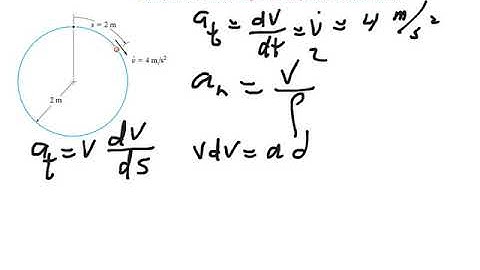 s = 2 m
v̇ = 4 m/s²
2 m
a_t = dv/dt = v̇ = 4 m/s²
a_n = v²/ρ
a_t = v dv/ds
vdv = a d